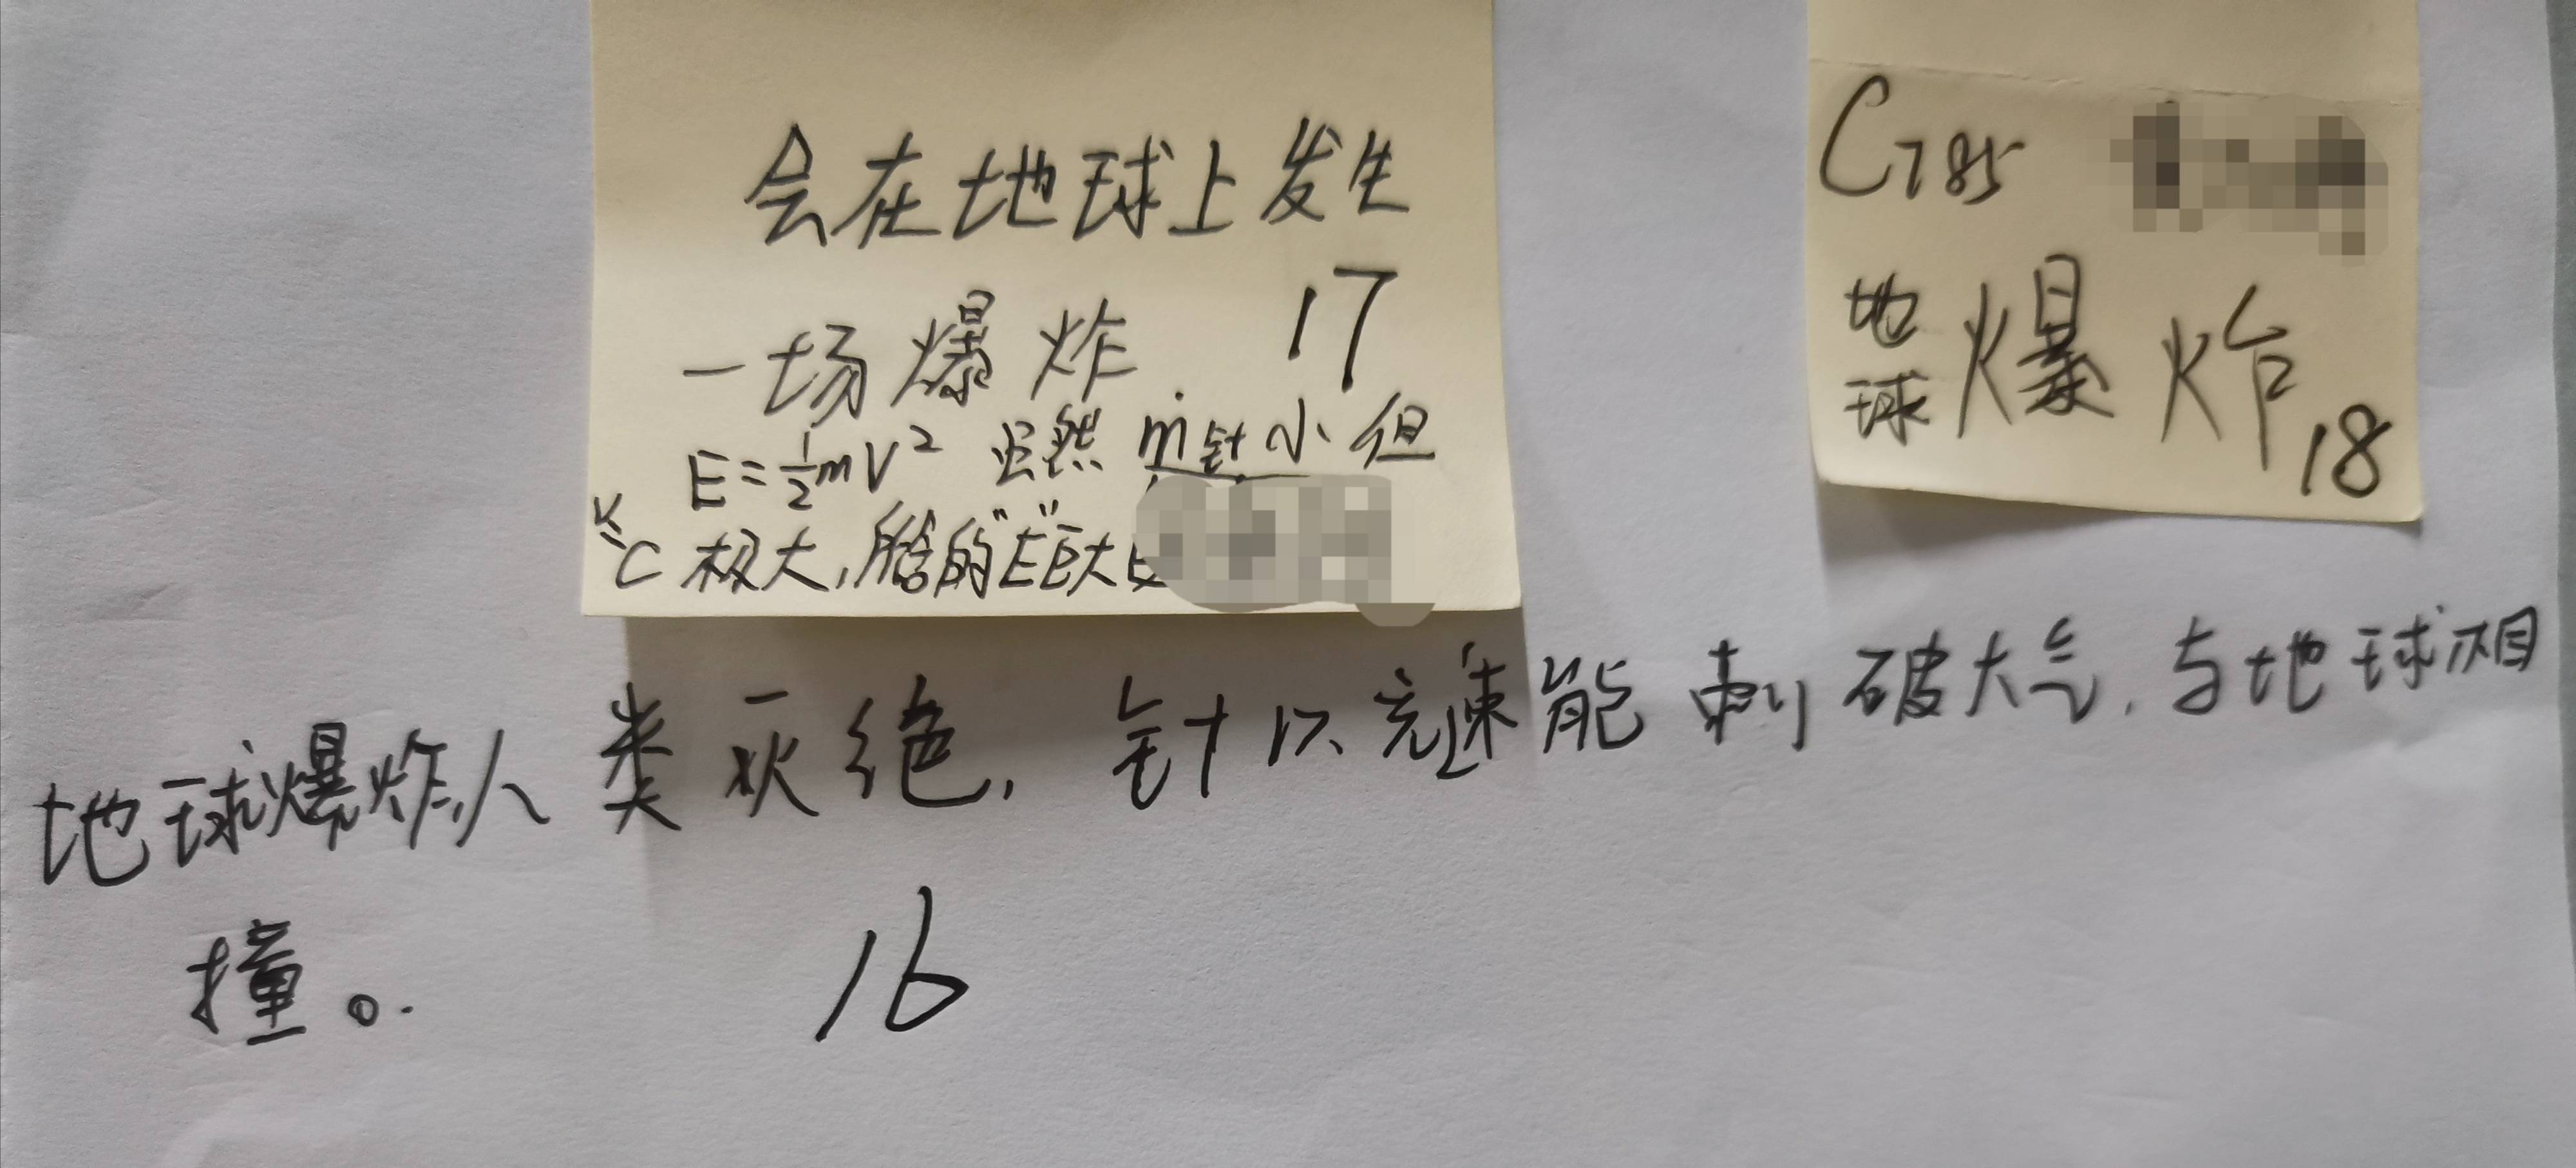 会在地球上发生
一场爆炸 17
E=½mV² 虽然 m针小但
V=C 极大,所的"E"巨大
C785
地球爆炸 18
地球爆炸,人类灭绝,针以光速能刺破大气,与地球相
撞。
16